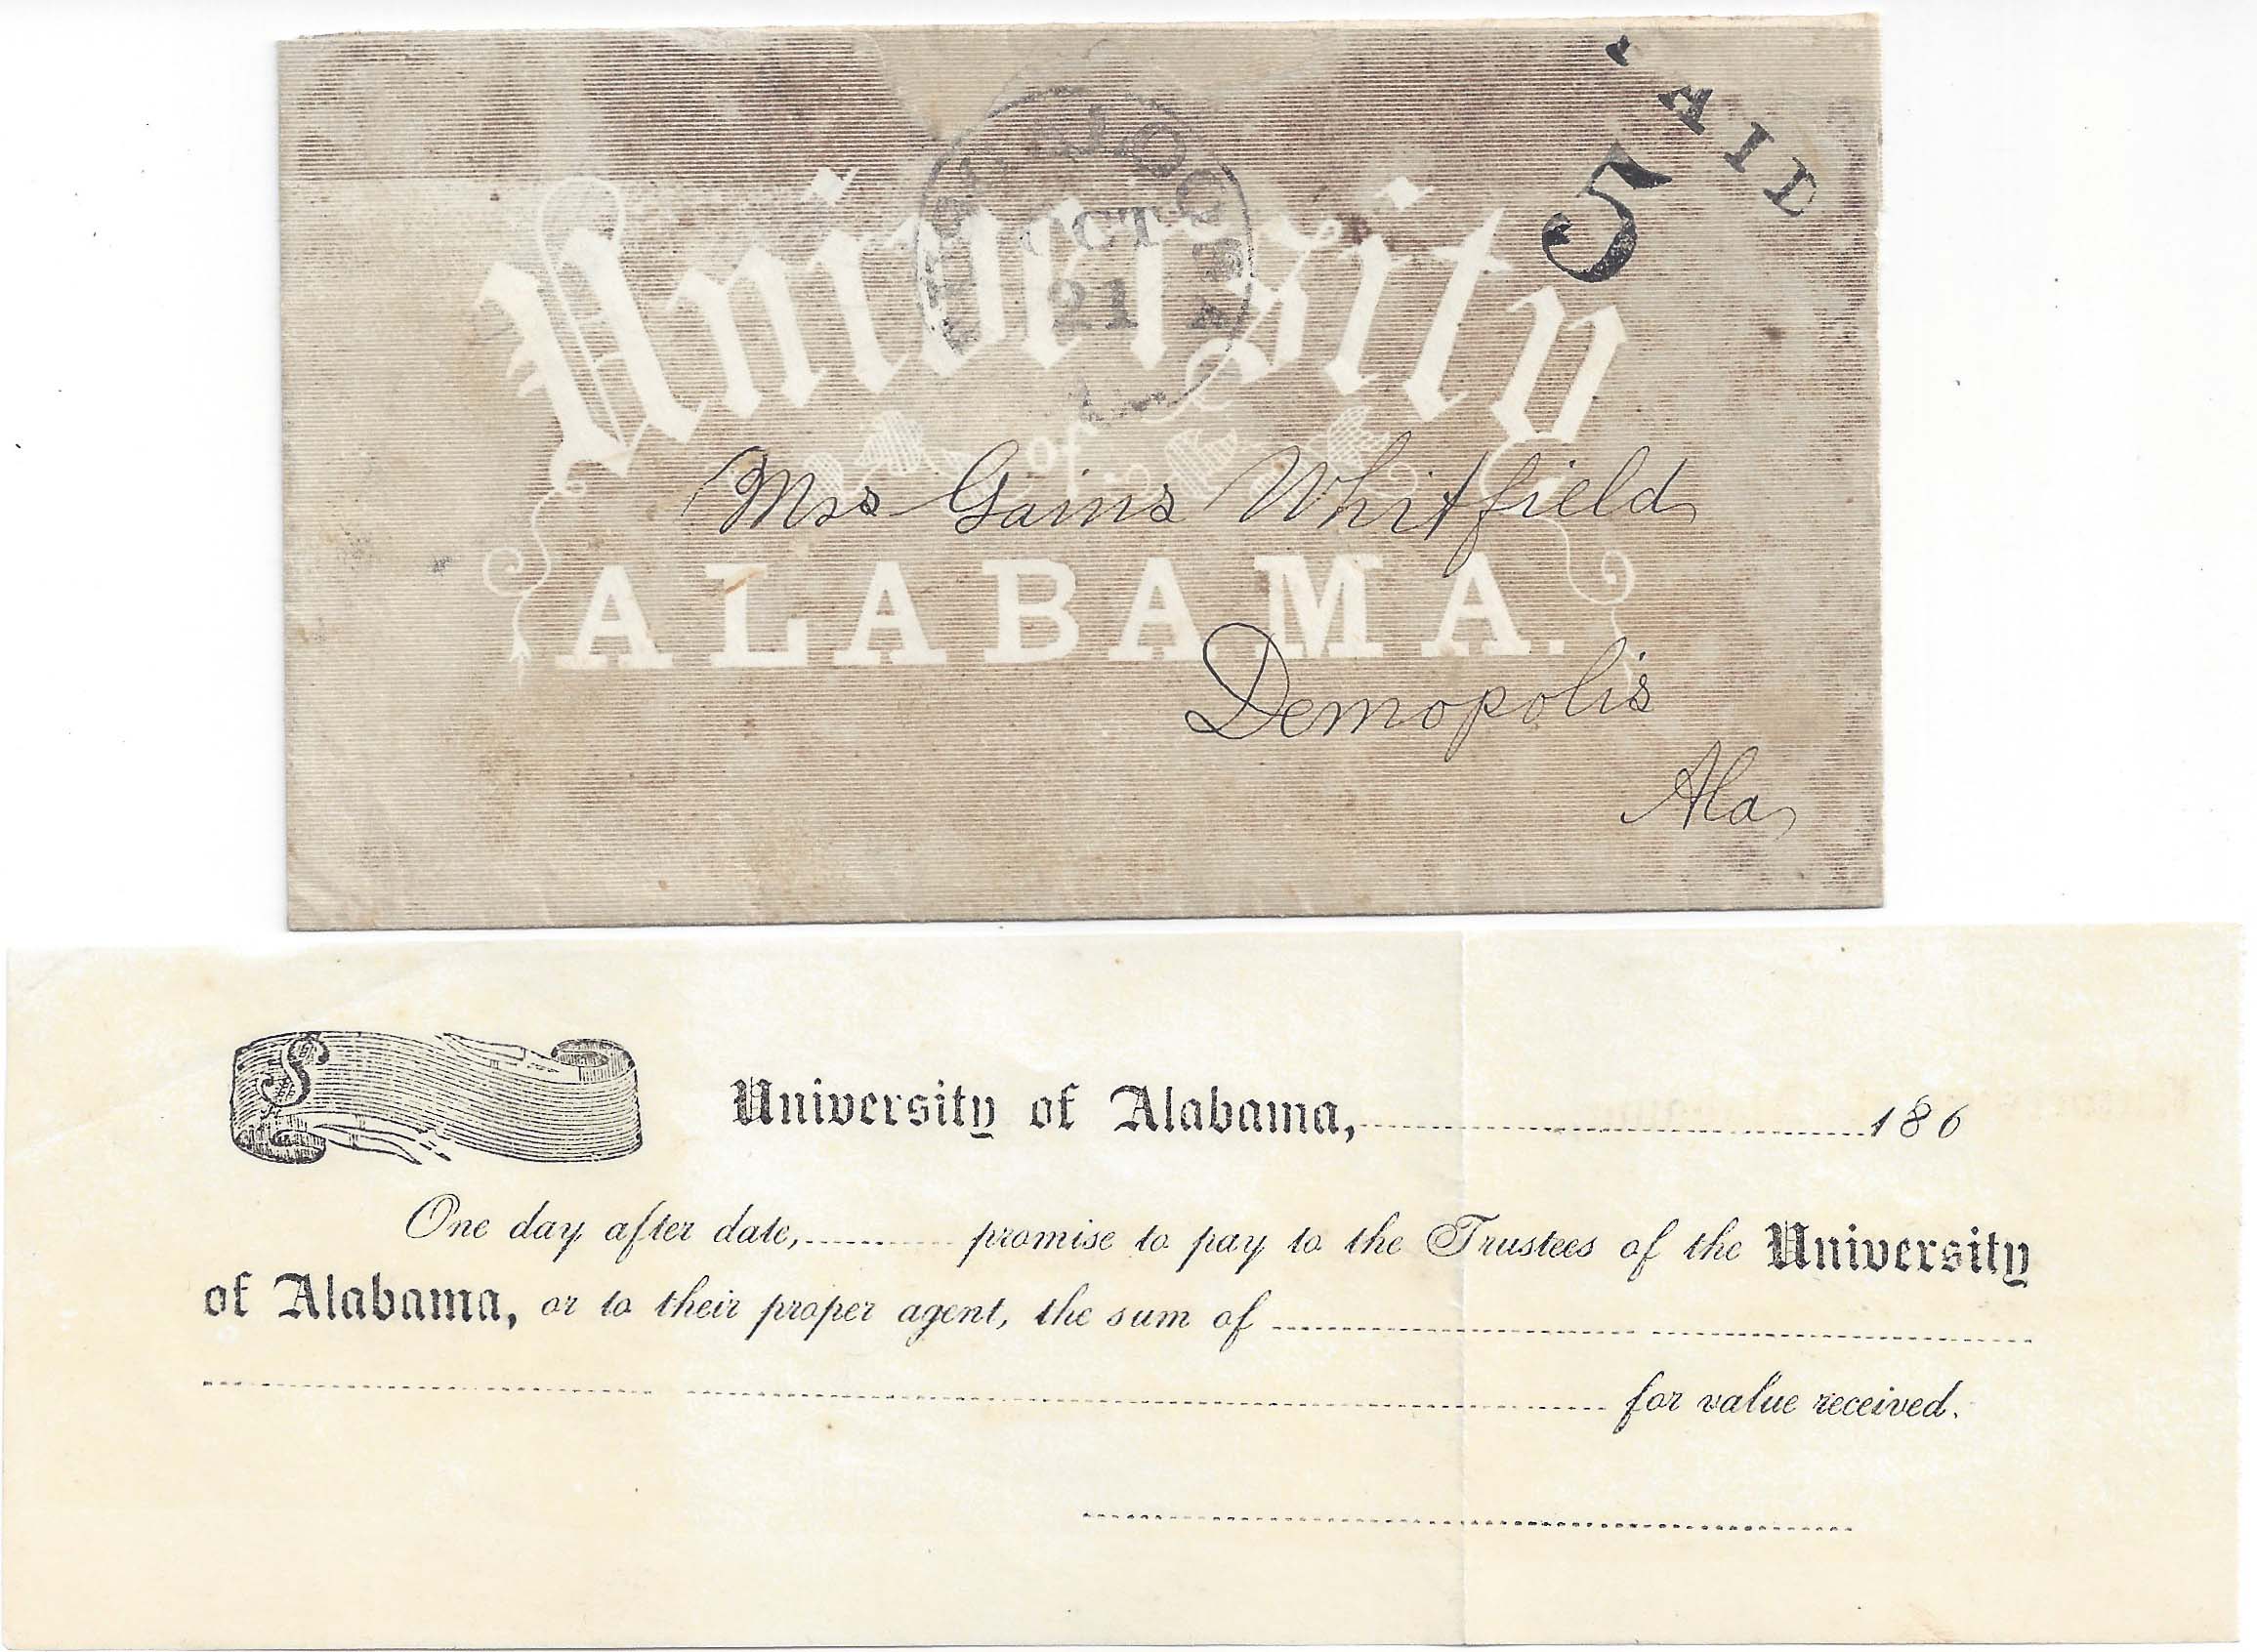 PAID
5
TUSKALOOSA
OCT
21
ALA
University
of
Mrs Gains Whitfield
ALABAMA.
Demopolis
Ala
$
University of Alabama, 186
One day after date, promise to pay to the Trustees of the University
of Alabama, or to their proper agent, the sum of
for value received.